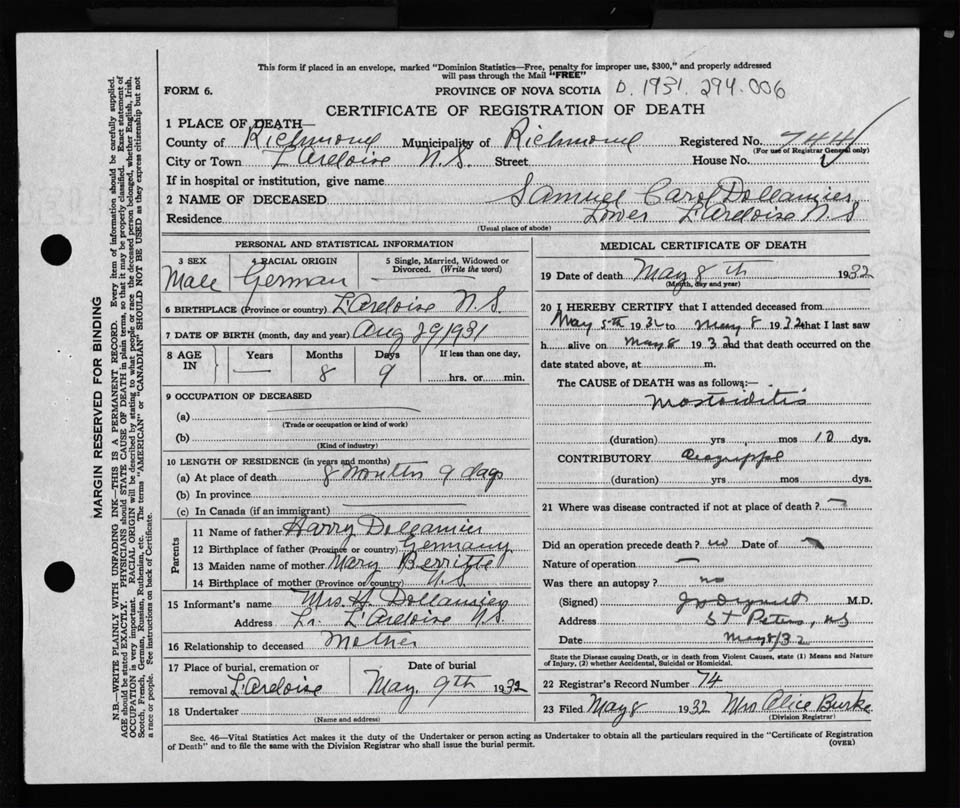 This form if placed in an envelope, marked "Dominion Statistics—Free, penalty for improper use, $300," and properly addressed
will pass through the Mail "FREE"
FORM 6.
PROVINCE OF NOVA SCOTIA D. 1931. 294.006
CERTIFICATE OF REGISTRATION OF DEATH
1 PLACE OF DEATH—
County of Richmond Municipality of Richmond Registered No. 744
(For use of Registrar General only)
City or Town L'Ardoise N.S. Street House No.
If in hospital or institution, give name
2 NAME OF DECEASED Samuel Carol Dollamier
Residence Lower L'Ardoise N S
(Usual place of abode)
PERSONAL AND STATISTICAL INFORMATION
3 SEX 4 RACIAL ORIGIN 5 Single, Married, Widowed or Divorced. (Write the word)
Male German —
6 BIRTHPLACE (Province or country) L'Ardoise N.S.
7 DATE OF BIRTH (month, day and year) Aug 29 1931
8 AGE IN Years Months Days If less than one day,
— 8 9 hrs. or min.
9 OCCUPATION OF DECEASED
(a)
(Trade or occupation or kind of work)
(b)
(Kind of industry)
10 LENGTH OF RESIDENCE (in years and months)
(a) At place of death 8 months 9 days
(b) In province
(c) In Canada (if an immigrant)
Parents
11 Name of father Harry Dollamier
12 Birthplace of father (Province or country) Germany
13 Maiden name of mother Mary Berritte
14 Birthplace of mother (Province or country) N.S.
15 Informant's name Mrs. H. Dollamier
Address Lr. L'Ardoise N.S.
16 Relationship to deceased Mother
17 Place of burial, cremation or removal L'Ardoise Date of burial May 9th 1932
18 Undertaker
(Name and address)
MEDICAL CERTIFICATE OF DEATH
19 Date of death May 8th 1932
(Month, day and year)
20 I HEREBY CERTIFY that I attended deceased from
May 5th 1932 to May 8 1932 that I last saw
h alive on May 8 1932 and that death occurred on the
date stated above, at m.
The CAUSE of DEATH was as follows:—
Mastoiditis
(duration) yrs mos 10 dys.
CONTRIBUTORY
(duration) yrs mos dys.
21 Where was disease contracted if not at place of death?
Did an operation precede death? no Date of
Nature of operation —
Was there an autopsy? no
(Signed) M.D.
Address St Peters, NS
Date May 8/32
State the Disease causing Death, or in death from Violent Causes, state (1) Means and Nature
of Injury, (2) whether Accidental, Suicidal or Homicidal.
22 Registrar's Record Number 74
23 Filed May 8 1932 Mrs Alice Burke
(Division Registrar)
Sec. 46—Vital Statistics Act makes it the duty of the Undertaker or person acting as Undertaker to obtain all the particulars required in the "Certificate of Registration
of Death" and to file the same with the Division Registrar who shall issue the burial permit. (OVER)
MARGIN RESERVED FOR BINDING
N.B.—WRITE PLAINLY WITH UNFADING INK—THIS IS A PERMANENT RECORD. Every item of information should be carefully supplied.
AGE should be stated EXACTLY. PHYSICIANS should STATE CAUSE OF DEATH in plain terms, so that it may be properly classified. Exact statement of
OCCUPATION is very important. RACIAL ORIGIN will be described by stating to what people or race the deceased person belonged, whether English, Irish,
Scotch, French, German, Russian, Ruthenian, etc. The terms "AMERICAN" or "CANADIAN" SHOULD NOT BE USED as they express citizenship but not
a race or people. See instructions on back of Certificate.